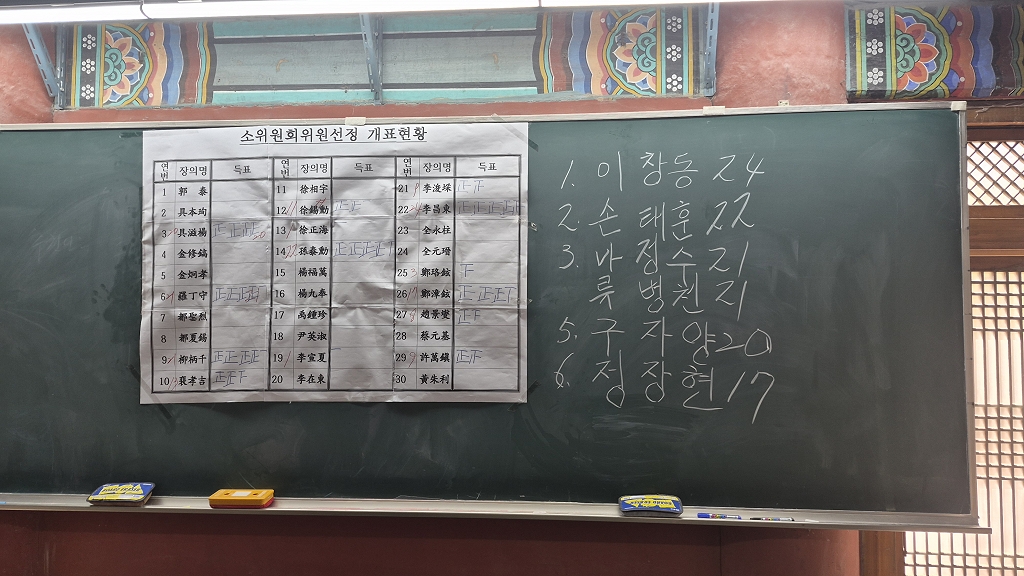 소위원회위원선정 개표현황
연번 장의명 득표 연번 장의명 득표 연번 장의명 득표
1 郭泰 11 徐相宇 21 李浚埰 正正
2 具本珣 12 徐錫勳 正正 22 李昌東 正正正正
3 具滋楊 正正正 13 徐正海 23 全永柱
4 金修鎬 14 孫泰勳 正正正正 24 全元瑨
5 金炯孝 15 楊福萬 25 鄭珞鉉
6 羅丁守 正正正正 16 楊九奉 26 鄭漳鉉 正正正
7 都聖烈 17 禹鐘珍 27 趙景瑩 正
8 都夏錫 18 尹英淑 28 蔡元基
9 柳柄千 正正正正 19 李宣夏 29 許萬鎭 正
10 裵孝吉 正正 20 李在東 30 黃朱利
1. 이창동 24
2. 손태훈 22
3. 나정수 21
류병천 21
5. 구자양 20
6. 정장현 17